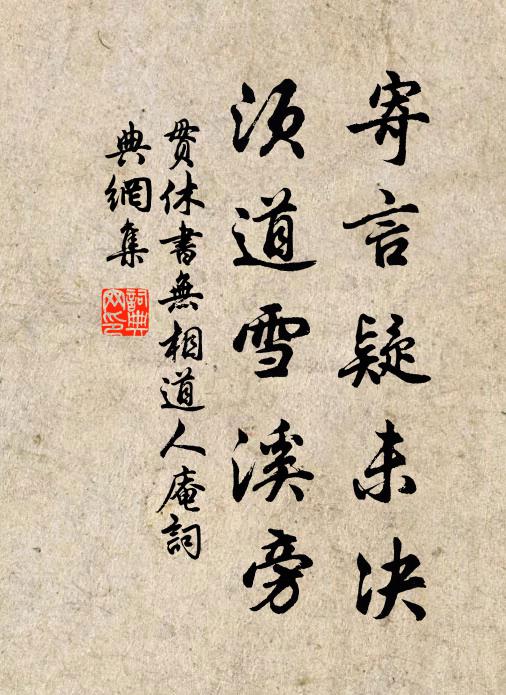 寄言疑未決
須道雪溪旁
貫休書無相道人庵詞
典網集
詞典網印